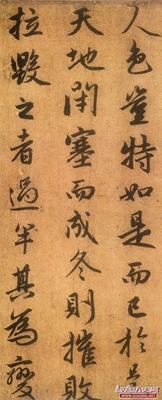 人色豈特如是而已於是
天地閉塞而成冬則摧敗
拉毀之者過半其為變